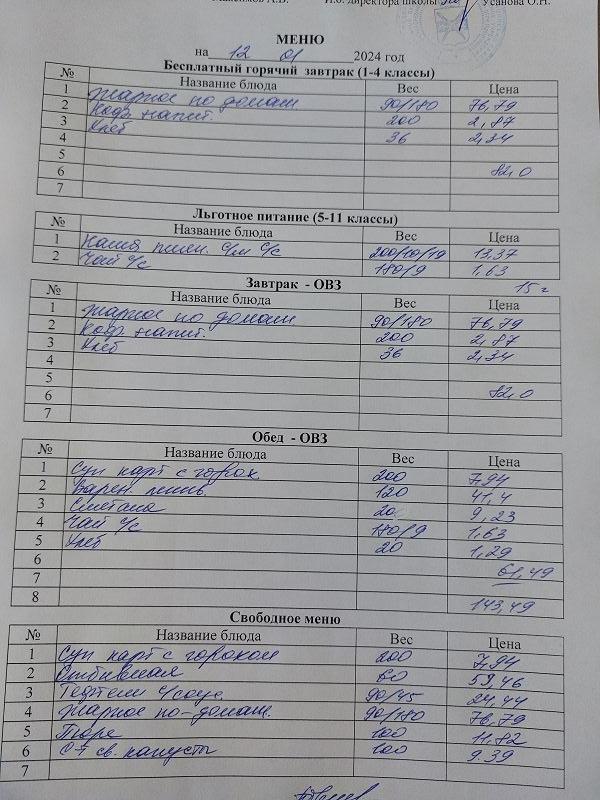 Максимов А.В. И.о. директора школы Усанова О.Н.
МЕНЮ
на 12 01 2024 год
Бесплатный горячий завтрак (1-4 классы)
№ Название блюда Вес Цена
1 Жаркое по домаш. 90/180 76,79
2 Кофе. напит. 200 2,87
3 Хлеб 36 2,34
4
5
6 82,0
7
Льготное питание (5-11 классы)
№ Название блюда Вес Цена
1 Каша пшен. с/м с/с 200/10/19 13,37
2 Чай с/с 180/9 1,63
15
Завтрак - ОВЗ
№ Название блюда Вес Цена
1 Жаркое по домаш 90/180 76,79
2 Кофе. напит. 200 2,87
3 Хлеб 36 2,34
4
5
6 82,0
7
Обед - ОВЗ
№ Название блюда Вес Цена
1 Суп карт с горох 200 7,94
2 Варен. 120 41,4
3 Сметана 20 9,23
4 Чай с/с 180/9 1,63
5 Хлеб 20 1,29
6
7 61,49
8 143,49
Свободное меню
№ Название блюда Вес Цена
1 Суп карт с горохом 200 7,94
2 Отбивная 60 59,46
3 Тефтели с/соус 90/45 24,44
4 Жаркое по-домаш. 90/180 76,79
5 Пюре 100 11,82
6 С-т св. капусты 100 9.39
7